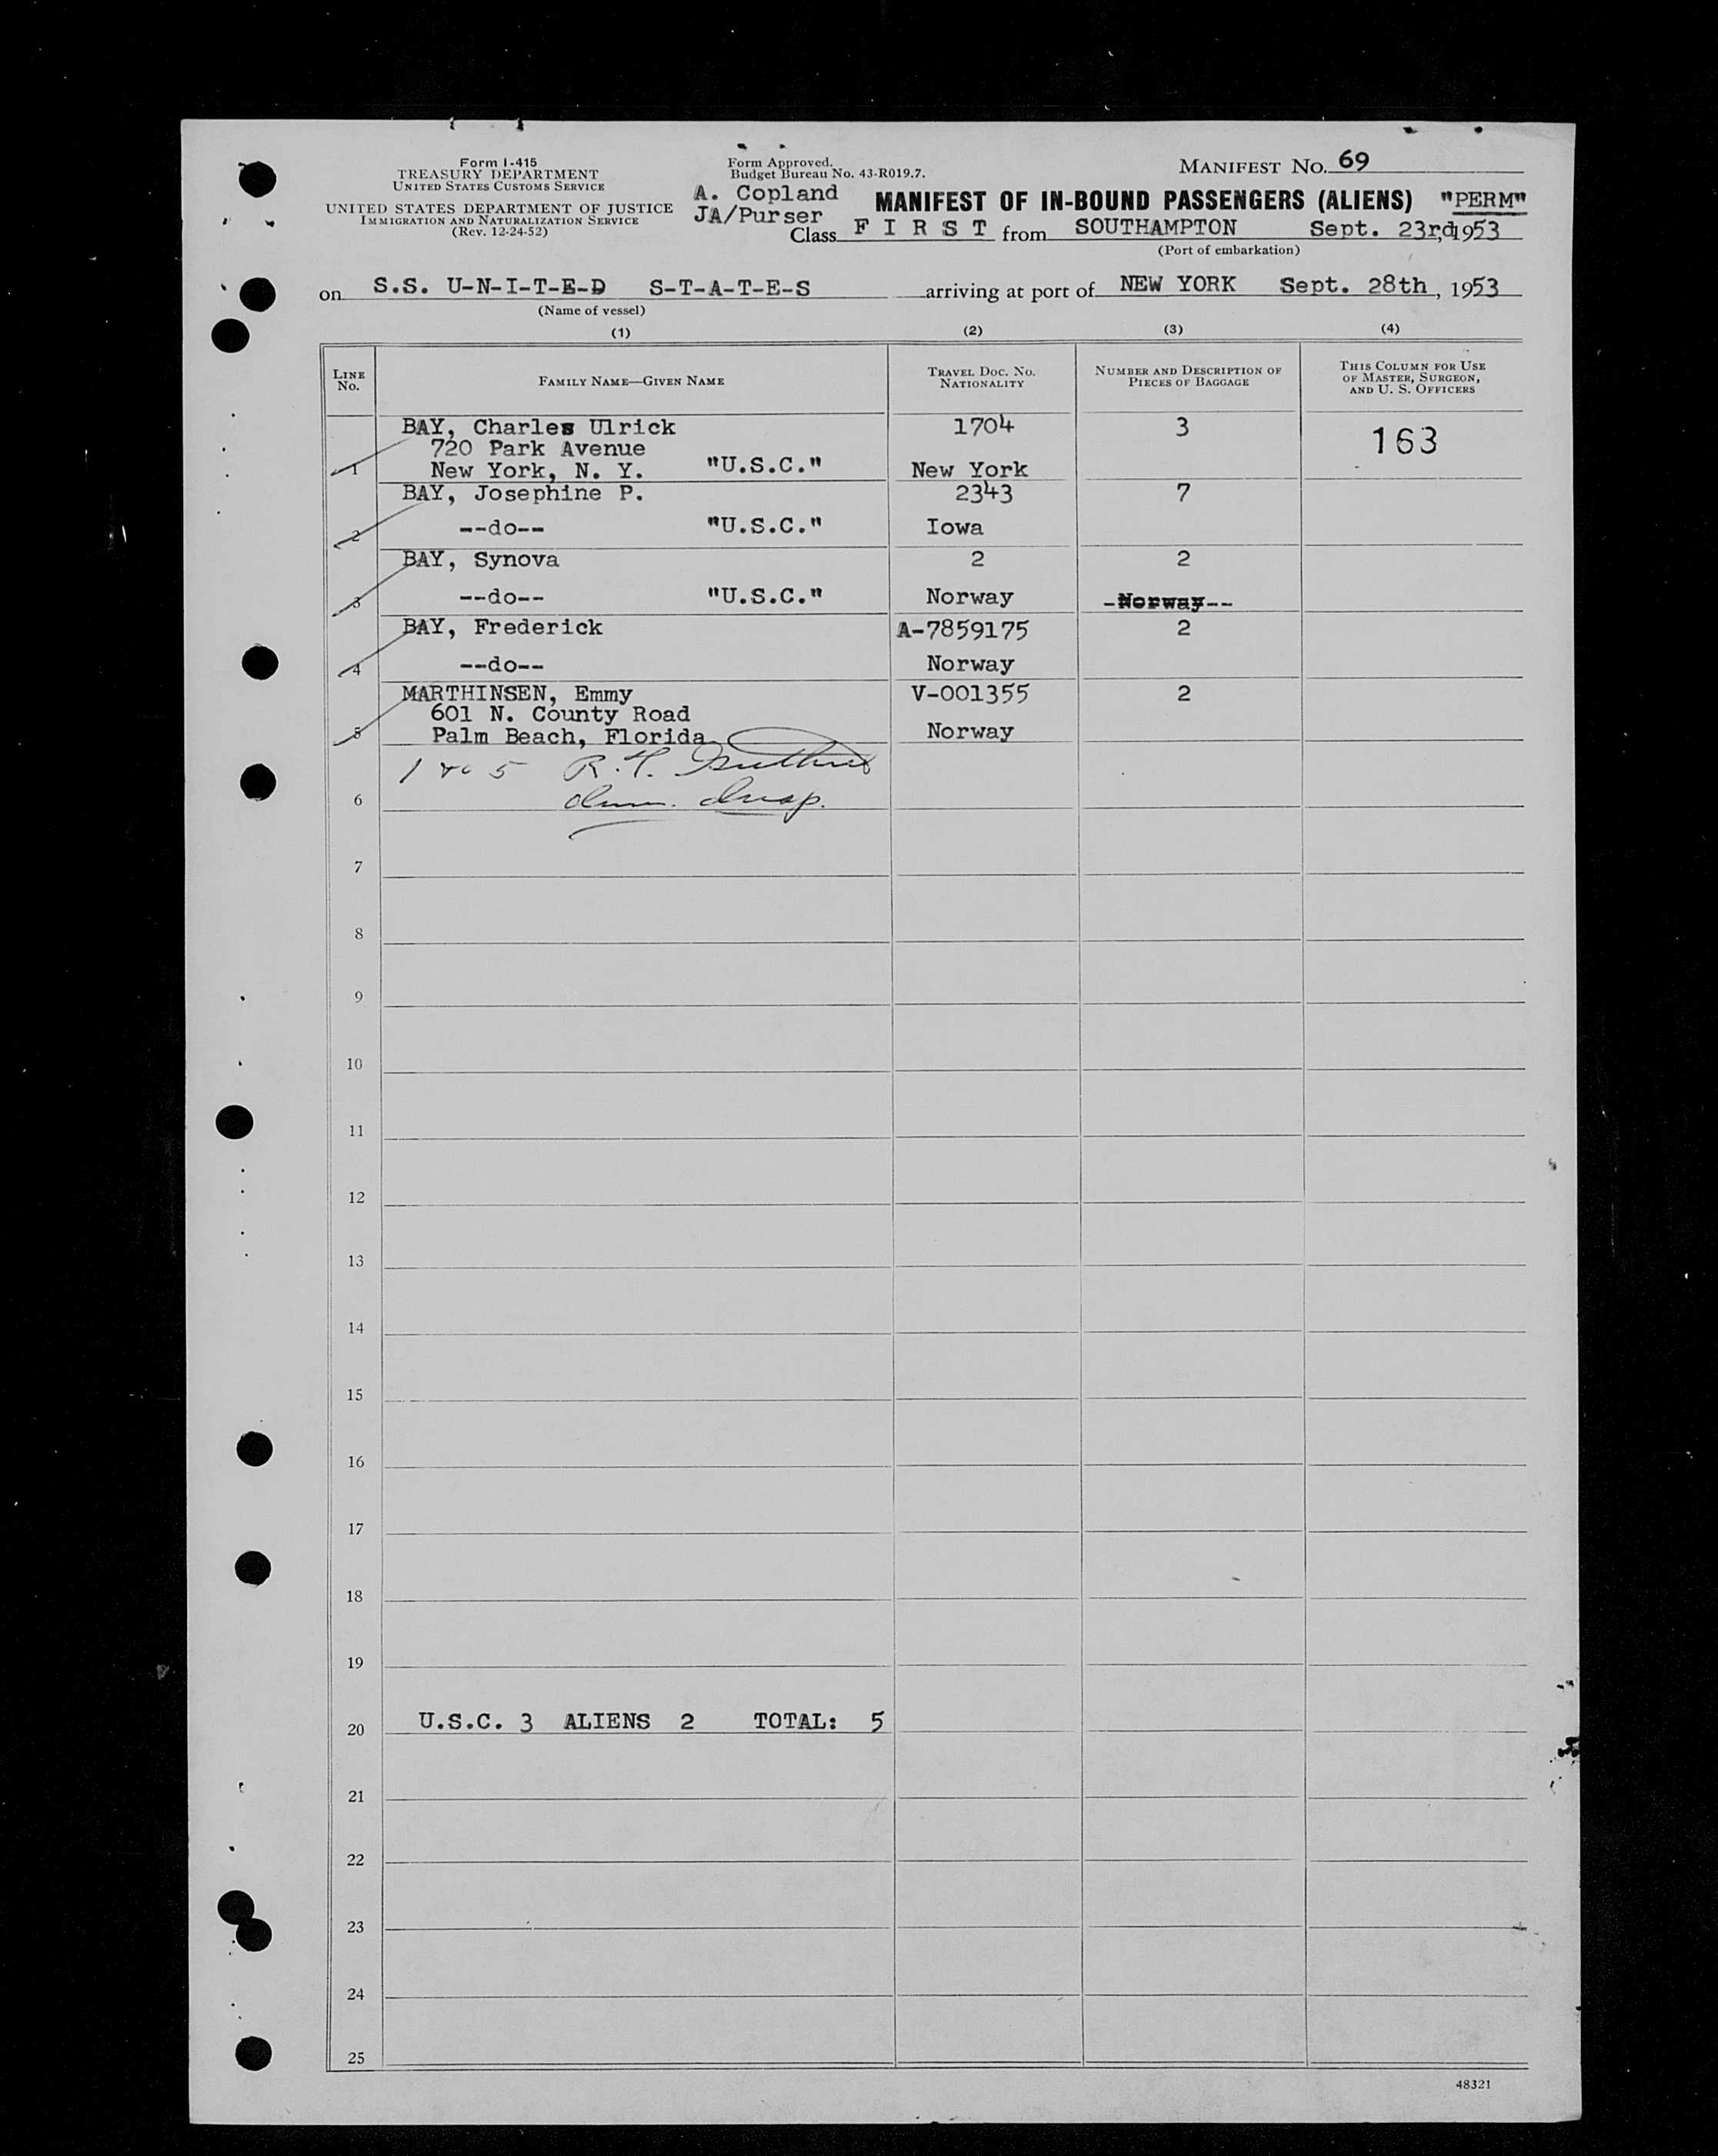 Form I-415
TREASURY DEPARTMENT
UNITED STATES CUSTOMS SERVICE
UNITED STATES DEPARTMENT OF JUSTICE
IMMIGRATION AND NATURALIZATION SERVICE
(Rev. 12-24-52)
Form Approved.
Budget Bureau No. 43-R019.7.
A. Copland
JA/Purser
MANIFEST NO. 69
MANIFEST OF IN-BOUND PASSENGERS (ALIENS) "PERM"
Class F I R S T from SOUTHAMPTON Sept. 23rd, 1953
(Port of embarkation)
on S.S. U-N-I-T-E-D S-T-A-T-E-S arriving at port of NEW YORK Sept. 28th, 1953
(Name of vessel)
(1) (2) (3) (4)
LINE NO. FAMILY NAME—GIVEN NAME TRAVEL DOC. NO. NATIONALITY NUMBER AND DESCRIPTION OF PIECES OF BAGGAGE THIS COLUMN FOR USE OF MASTER, SURGEON, AND U. S. OFFICERS
BAY, Charles Ulrick 1704 3 163
720 Park Avenue
1 New York, N. Y. "U.S.C." New York
BAY, Josephine P. 2343 7
2 --do-- "U.S.C." Iowa
BAY, Synova 2 2
3 --do-- "U.S.C." Norway -Norway--
BAY, Frederick A-7859175 2
4 --do-- Norway
MARTHINSEN, Emmy V-001355 2
601 N. County Road
5 Palm Beach, Florida Norway
1 to 5 R.
6 Imm. Insp.
7
8
9
10
11
12
13
14
15
16
17
18
19
20 U.S.C. 3 ALIENS 2 TOTAL: 5
21
22
23
24
25
48321